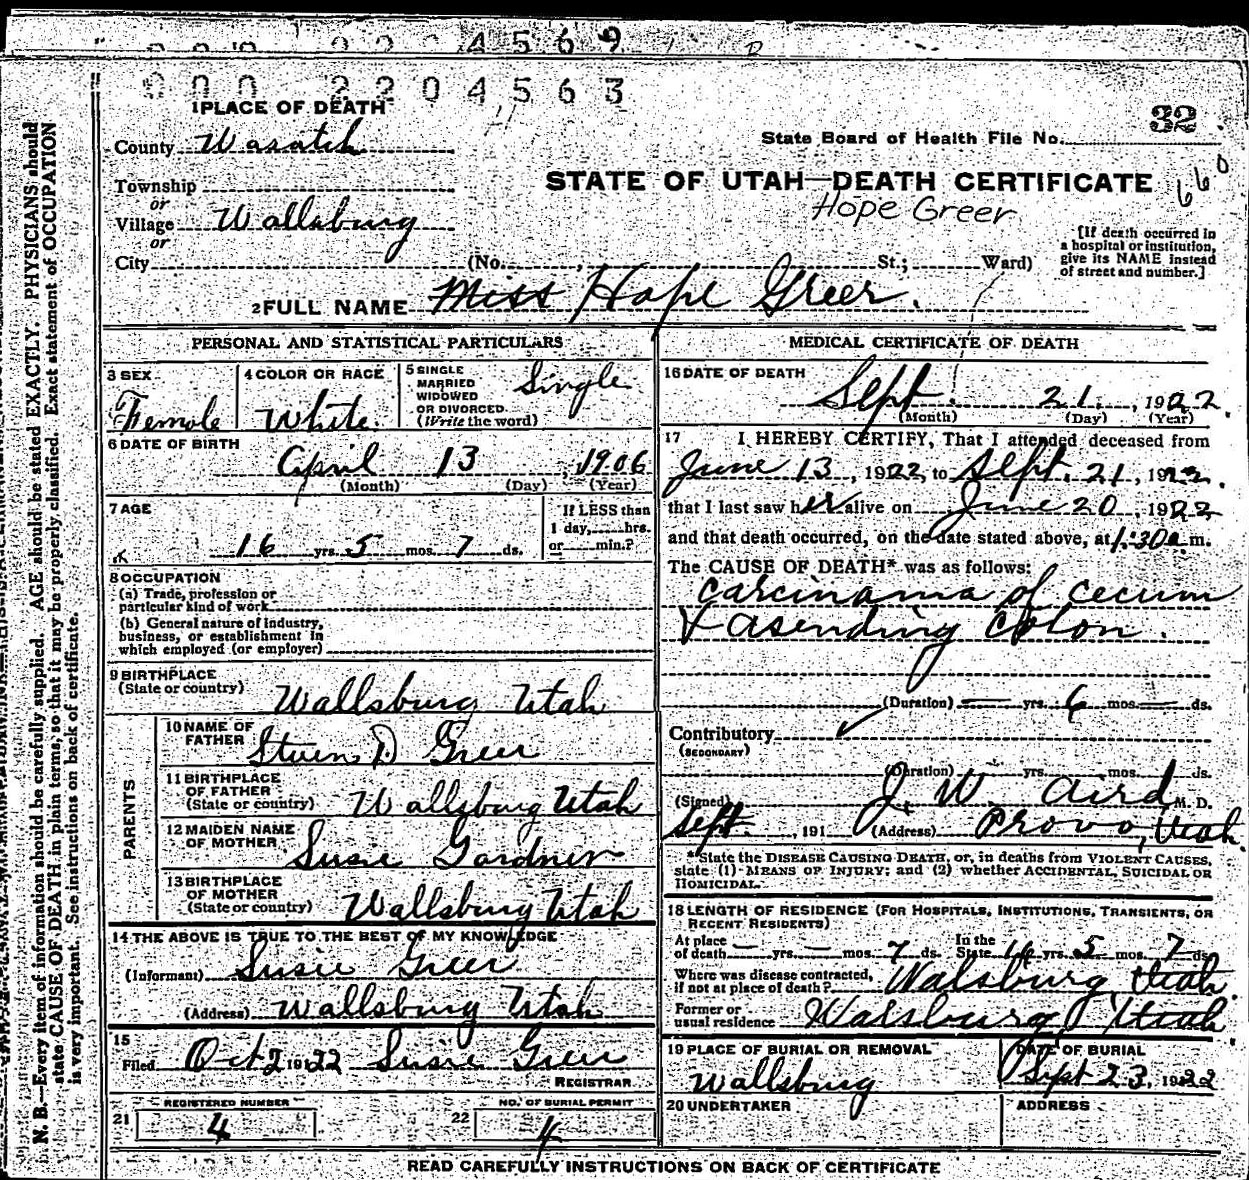 4569
2204563
1 PLACE OF DEATH
County Wasatch
State Board of Health File No. 32
Township
or
STATE OF UTAH—DEATH CERTIFICATE
660
Hope Greer
Village Wallsburg
or
City (No. , St.; Ward)
[If death occurred in
a hospital or institution,
give its NAME instead
of street and number.]
2 FULL NAME Miss Hope Greer.
PERSONAL AND STATISTICAL PARTICULARS
3 SEX
Female
4 COLOR OR RACE
White.
5 SINGLE
MARRIED
WIDOWED
OR DIVORCED
(Write the word)
Single
6 DATE OF BIRTH
April 13, 1906
(Month) (Day) (Year)
7 AGE
16 yrs. 5 mos. 7 ds.
If LESS than
1 day, hrs.
or min.?
8 OCCUPATION
(a) Trade, profession or
particular kind of work
(b) General nature of industry,
business, or establishment in
which employed (or employer)
9 BIRTHPLACE
(State or country) Wallsburg Utah
PARENTS
10 NAME OF
FATHER Stven D Greer
11 BIRTHPLACE
OF FATHER
(State or country) Wallsburg Utah
12 MAIDEN NAME
OF MOTHER Susie Gardner
13 BIRTHPLACE
OF MOTHER
(State or country) Wallsburg Utah
14 THE ABOVE IS TRUE TO THE BEST OF MY KNOWLEDGE
(Informant) Susie Greer
(Address) Wallsburg Utah
15
Filed Oct 2 1922 Susie Greer
REGISTRAR
21 REGISTERED NUMBER
4
22 NO. OF BURIAL PERMIT
4
MEDICAL CERTIFICATE OF DEATH
16 DATE OF DEATH
Sept. 21, 1922.
(Month) (Day) (Year)
17 I HEREBY CERTIFY, That I attended deceased from
June 13, 1922, to Sept. 21, 1922.
that I last saw her alive on June 20, 1922
and that death occurred, on the date stated above, at 1:30 a.m.
The CAUSE OF DEATH* was as follows:
Carcinama of Cecum
& asending Colon.
(Duration) — yrs. 6 mos. — ds.
Contributory
(SECONDARY)
(Duration) yrs. mos. ds.
(Signed) J. W. Aird M. D.
Sept. , 191 (Address) Provo, Utah.
*State the DISEASE CAUSING DEATH, or, in deaths from VIOLENT CAUSES,
state (1) MEANS OF INJURY; and (2) whether ACCIDENTAL, SUICIDAL OR
HOMICIDAL.
18 LENGTH OF RESIDENCE (FOR HOSPITALS, INSTITUTIONS, TRANSIENTS, OR
RECENT RESIDENTS)
At place
of death — yrs. — mos. 7 ds. In the
State 16 yrs. 5 mos. 7 ds.
Where was disease contracted,
if not at place of death? Walsburg, Utah.
Former or
usual residence Walsburg, Utah
19 PLACE OF BURIAL OR REMOVAL
Wallsburg
DATE OF BURIAL
Sept 23, 1922
20 UNDERTAKER
ADDRESS
READ CAREFULLY INSTRUCTIONS ON BACK OF CERTIFICATE
N. B.—Every item of information should be carefully supplied. AGE should be stated EXACTLY. PHYSICIANS should
state CAUSE OF DEATH in plain terms, so that it may be properly classified. Exact statement of OCCUPATION
is very important. See instructions on back of certificate.